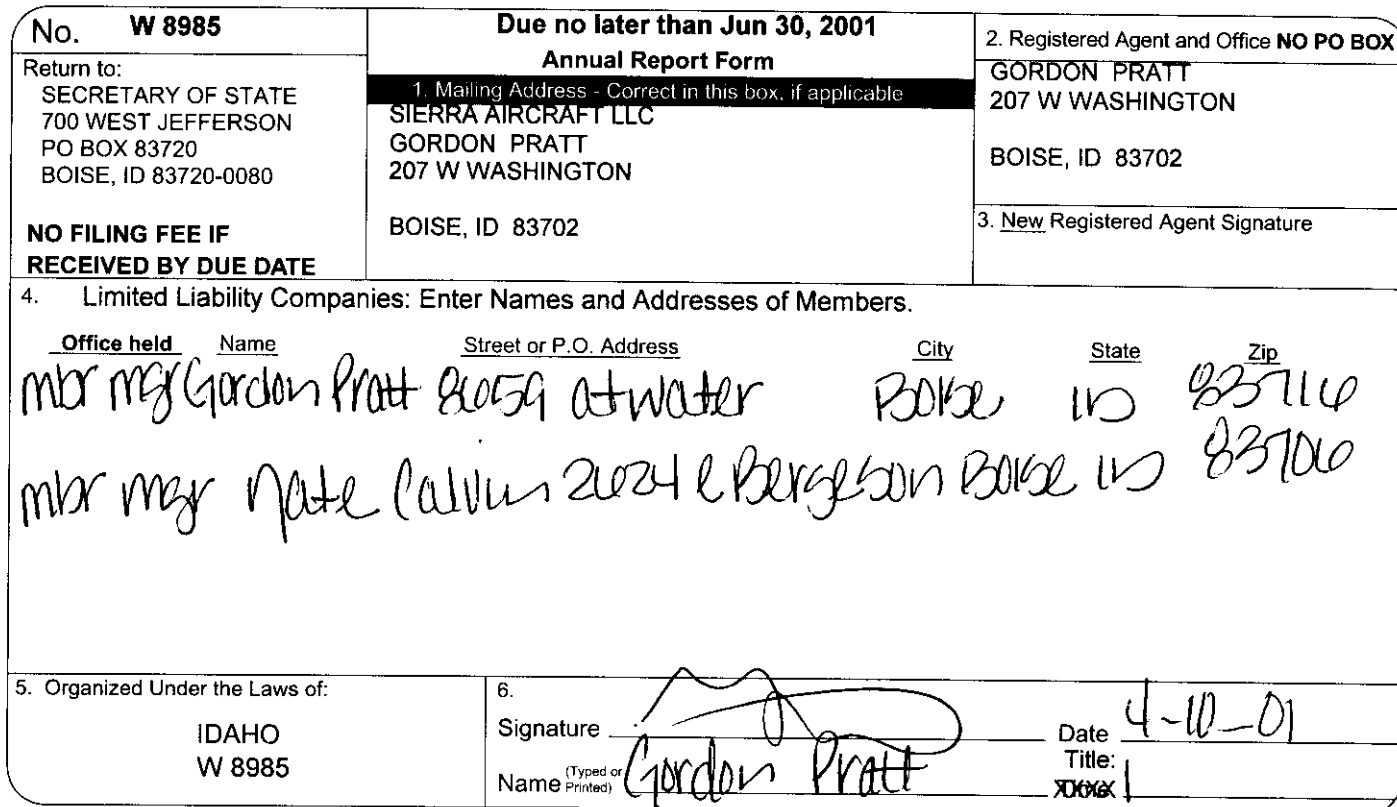 No. W 8985
Return to:
SECRETARY OF STATE
700 WEST JEFFERSON
PO BOX 83720
BOISE, ID 83720-0080
NO FILING FEE IF
RECEIVED BY DUE DATE
Due no later than Jun 30, 2001
Annual Report Form
1. Mailing Address - Correct in this box, if applicable
SIERRA AIRCRAFT LLC
GORDON PRATT
207 W WASHINGTON
BOISE, ID 83702
2. Registered Agent and Office NO PO BOX
GORDON PRATT
207 W WASHINGTON
BOISE, ID 83702
3. New Registered Agent Signature
4. Limited Liability Companies: Enter Names and Addresses of Members.
Office held Name Street or P.O. Address City State Zip
mbr mgr Gordon Pratt atwater Boise ID 83716
mbr mgr Nate Calvin 2624 e Bergeson Boise ID 83706
5. Organized Under the Laws of:
IDAHO
W 8985
6.
Signature Date 4-10-01
Name (Typed or Printed) Gordon Pratt Title: